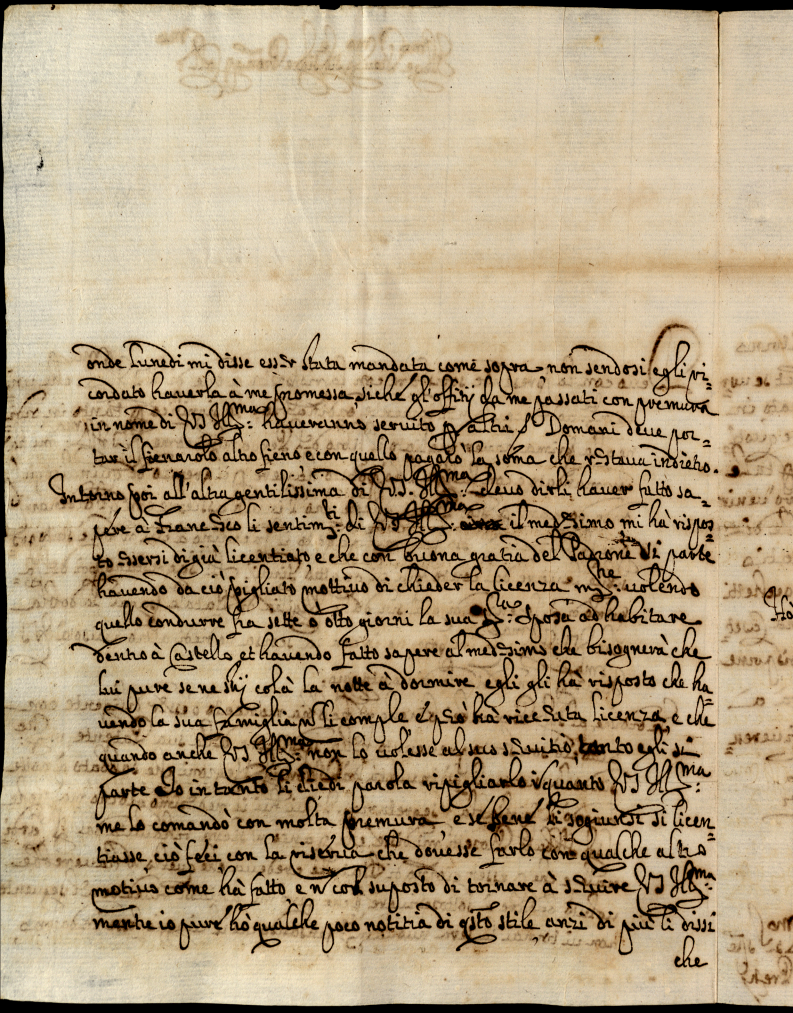 onde lunedì mi disse esser stata mandata come sopra non sendosi egli ri=
cordato haverla à me promessa, siche gl'offitij da me passati con premura
in nome di VS Ill.ma haveranno servito p altri. Domani deve por=
tar il fienarolo altro fieno e con quello pagarò la soma che restava indietro.
Intorno poi all'altra gentilissima di VS. Ill.ma devo dirli haver fatto sa=
pere à Francesco li sentim.ti di VS Ill.ma il medesimo mi hà rispos=
to essersi di già licentiato e che con buona gratia del Padrone si parte
havendo da ciò pigliato mottivo di chieder la licenza volendo
quello condurre frà sette o otto giorni la sua Sposa ad habitare
dentro à Castello, et havendo fatto sapere al medesimo che bisognerà che
lui pure se ne stij colà la notte à dormire egli gli hà risposto che ha=
vendo la sua famiglia n li comple e p ciò hà riceuta licenza e che
quando anche VS Ill.ma non lo volesse al suo servitio, tanto egli si
parte Io in tanto li diedi parola ripigliarlo quanto VS Ill.ma
me lo comandò con molta premura e se bene li sogiunsi si licen=
tiasse, ciò feci con la riserva che dovesse farlo con qualche altro
mottivo come hà fatto e n con suposto di tornare à servire VS Ill.ma
mentre io pure hò qualche poco notitia di qsto stile anzi di più li dissi
che